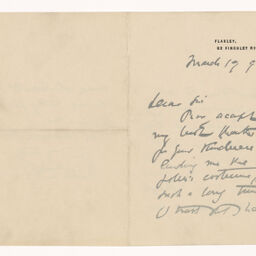 FLAXLEY,
62 FINCHLEY R
March 19 9
Dear Sir
Pray accept
my best thanks
for your kindness
lending me the
costume
such a long time
I trust